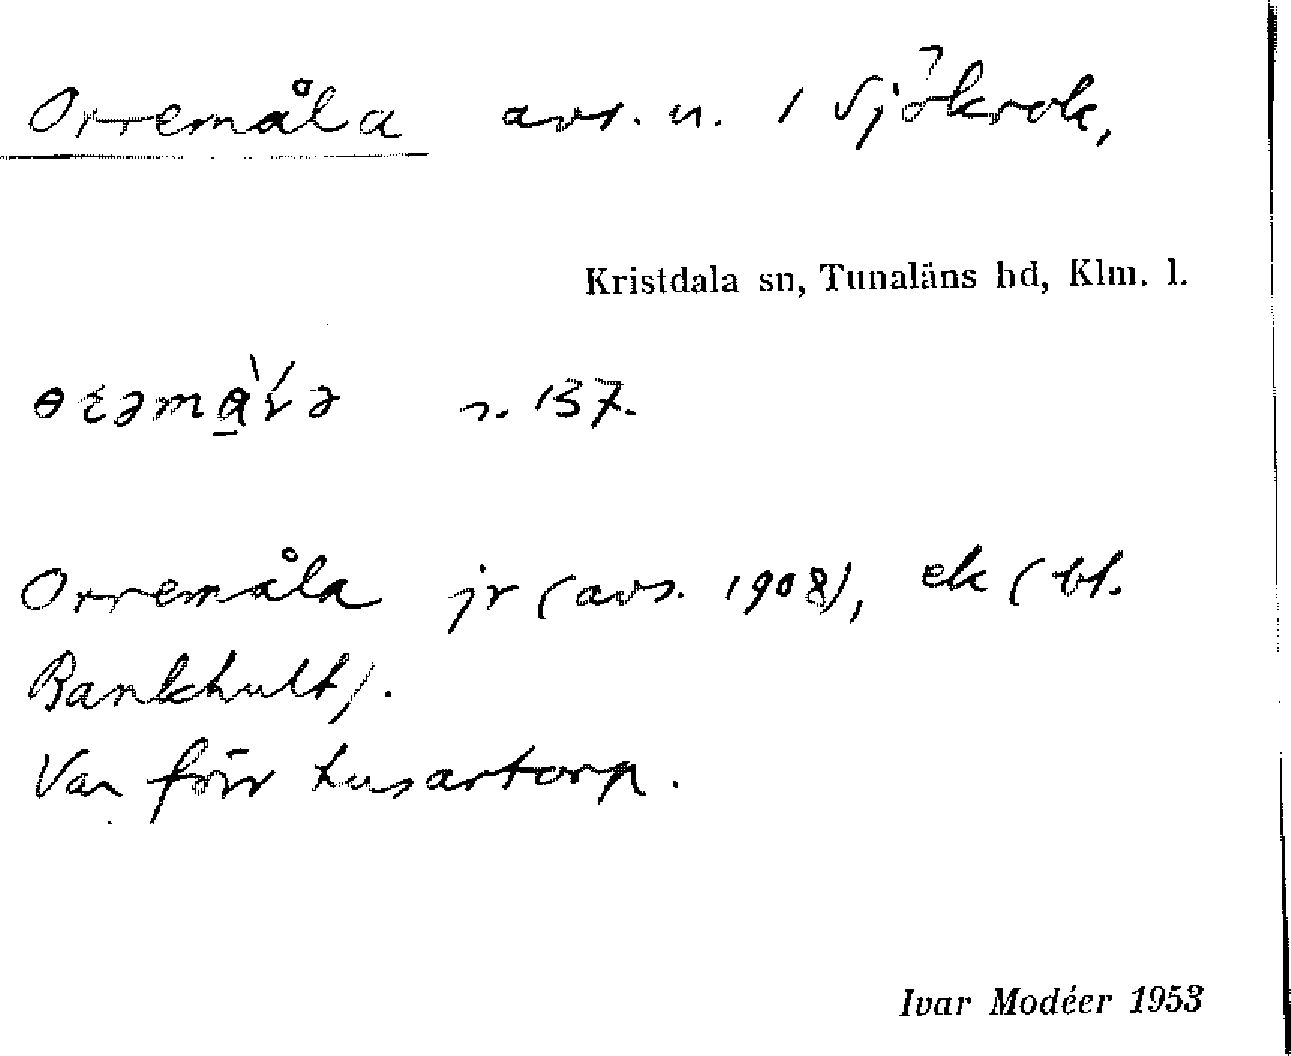 Orremåla avs. u. 1 Sjökrok,
Kristdala sn, Tunaläns hd, Klm. l.
s. 137.
Orremåla jr (avs. 1908), ek (bl.
Bankhult).
Var förr husartorp.
Ivar Modéer 1953